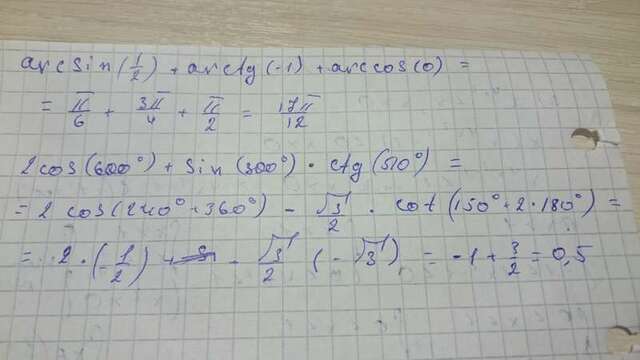 arcsin(1/2) + arctg(-1) + arccos(0) =
= π/6 + 3π/4 + π/2 = 17π/12
2cos(600°) + sin(300°) · ctg(510°) =
= 2 cos(240° + 360°) - √3/2 · cot(150° + 2·180°) =
= 2 · (-1/2) - √3/2 (-√3) = -1 + 3/2 = 0,5